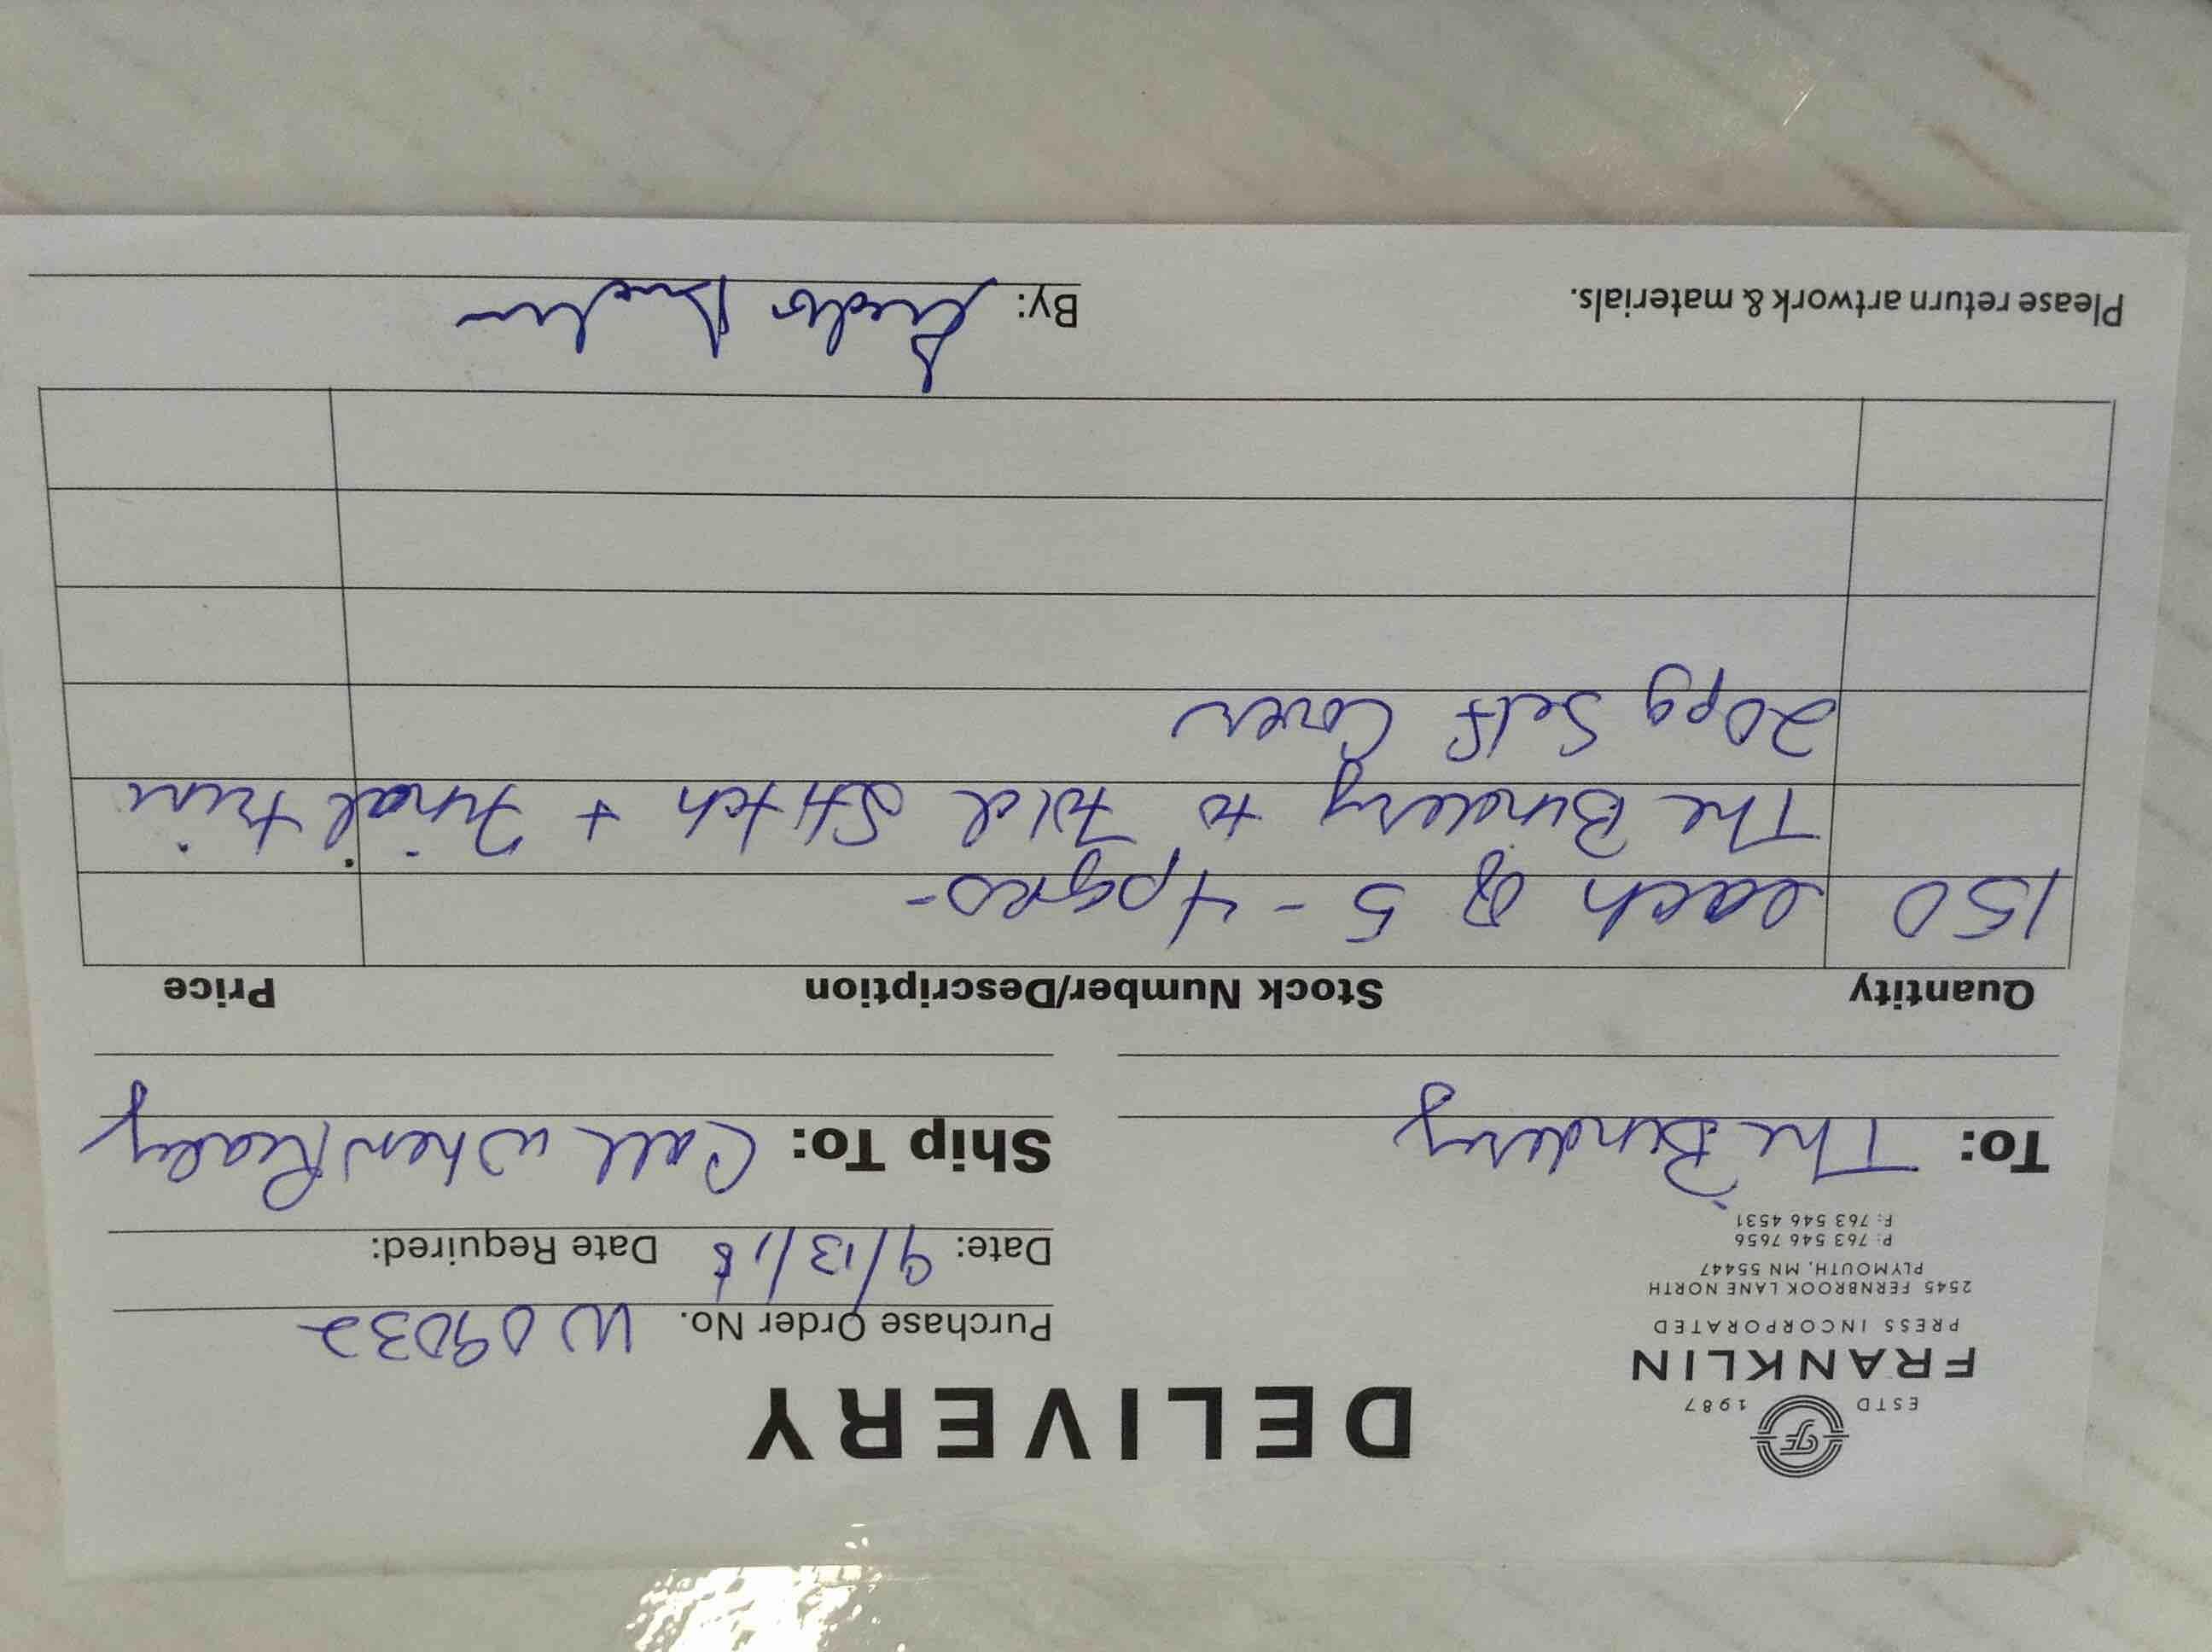 ESTD 1987
FRANKLIN
PRESS INCORPORATED
2545 FERNBROOK LANE NORTH
PLYMOUTH, MN 55447
P: 763 546 7656
F: 763 546 4531
DELIVERY
Purchase Order No. W09032
Date: 9/13/18 Date Required:
To: The Bindery
Ship To: Call when Ready
Quantity Stock Number/Description Price
150 each of 5 - 4 pages -
The Bindery to Fold Stitch + Final trim
20pg Self Cover
Please return artwork & materials.
By: